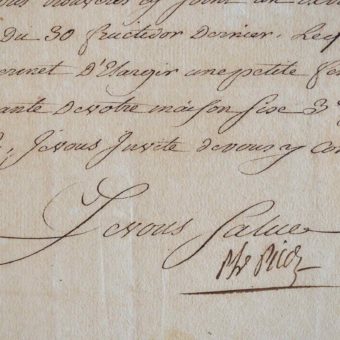 du 30 fructidor dernier. Leq
permet D'Elargir une petite fe
ante de votre maison sise 3
Je vous Invite de vous y con
Je vous Salue